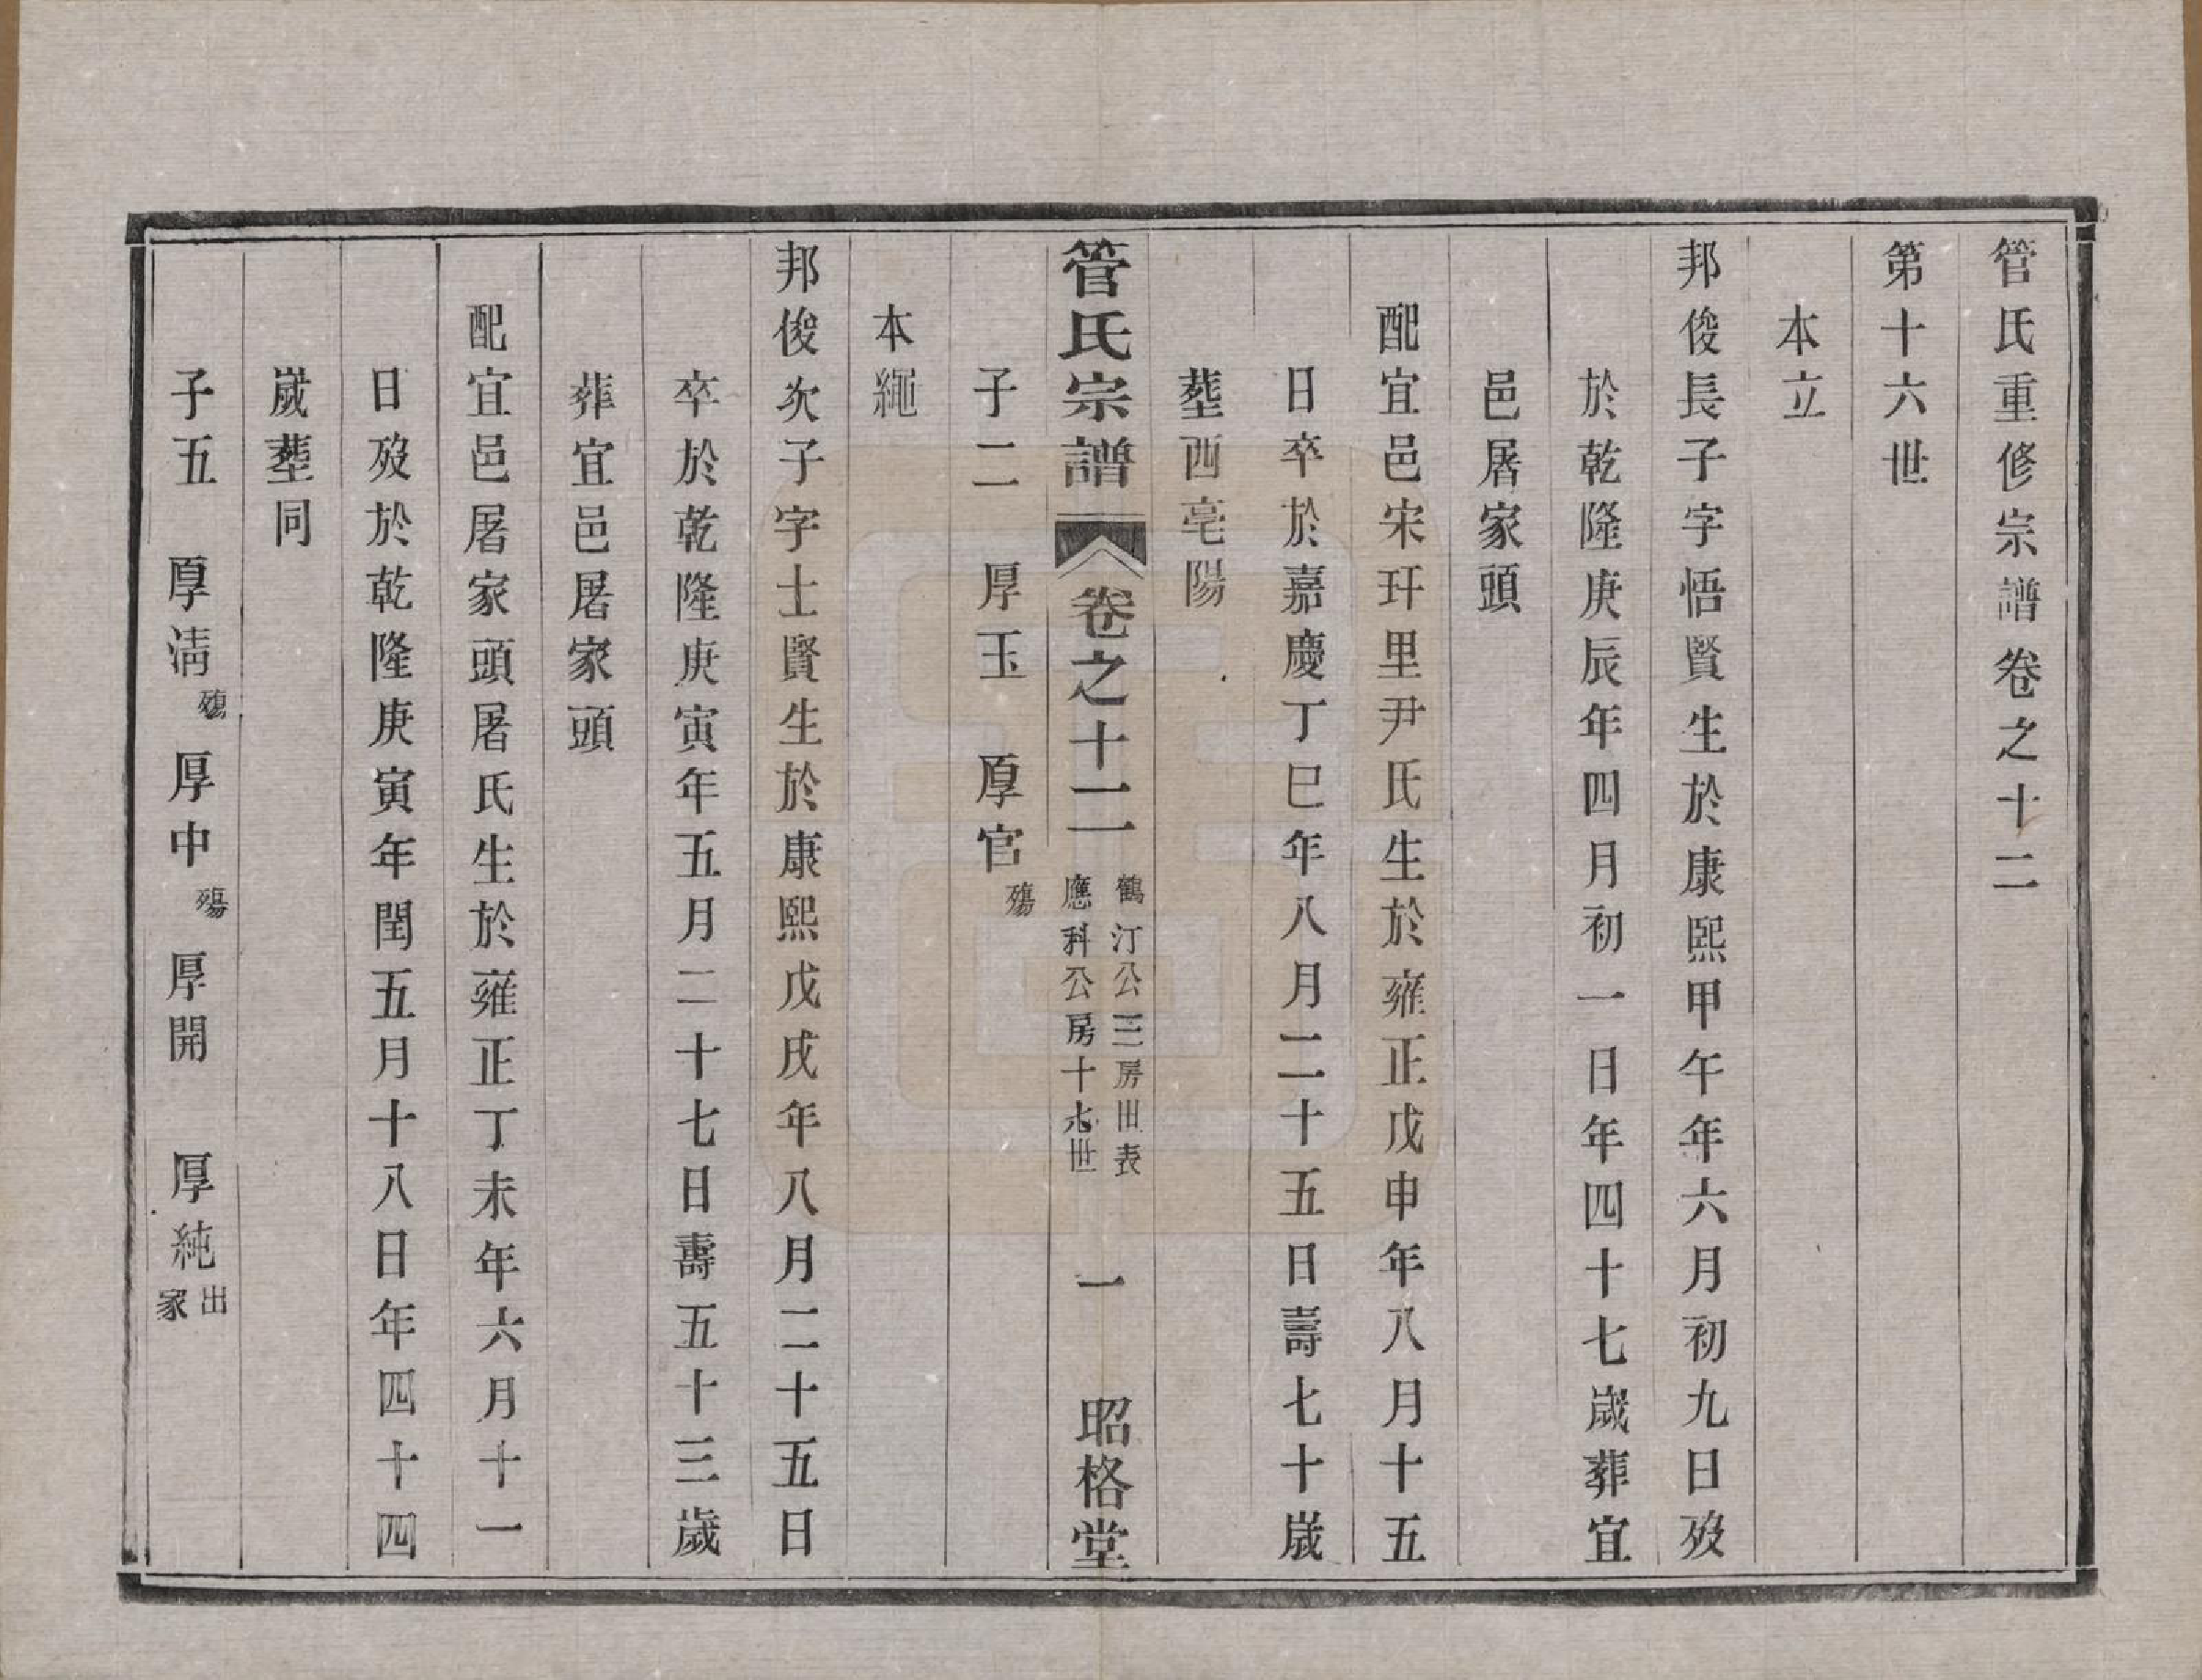 管氏重修宗譜卷之十二
第十六世
本立
邦俊長子字悟賢生於康熙甲午年六月初九日歿
於乾隆庚辰年四月初一日年四十七歲葬宜
邑屠家頭
配宜邑宋玕里尹氏生於雍正戊申年八月十五
日卒於嘉慶丁巳年八月二十五日壽七十歲
葬西亳陽
子二　厚玉　厚官殤
管氏宗譜　卷之十二　鶴汀公三房世表　應科公房十六世　一　昭格堂
本繩
邦俊次子字士賢生於康熙戊戌年八月二十五日
卒於乾隆庚寅年五月二十七日壽五十三歲
葬宜邑屠家頭
配宜邑屠家頭屠氏生於雍正丁未年六月十一
日歿於乾隆庚寅年閏五月十八日年四十四
歲葬同
子五　厚淸殤　厚中殤　厚開　厚純出家